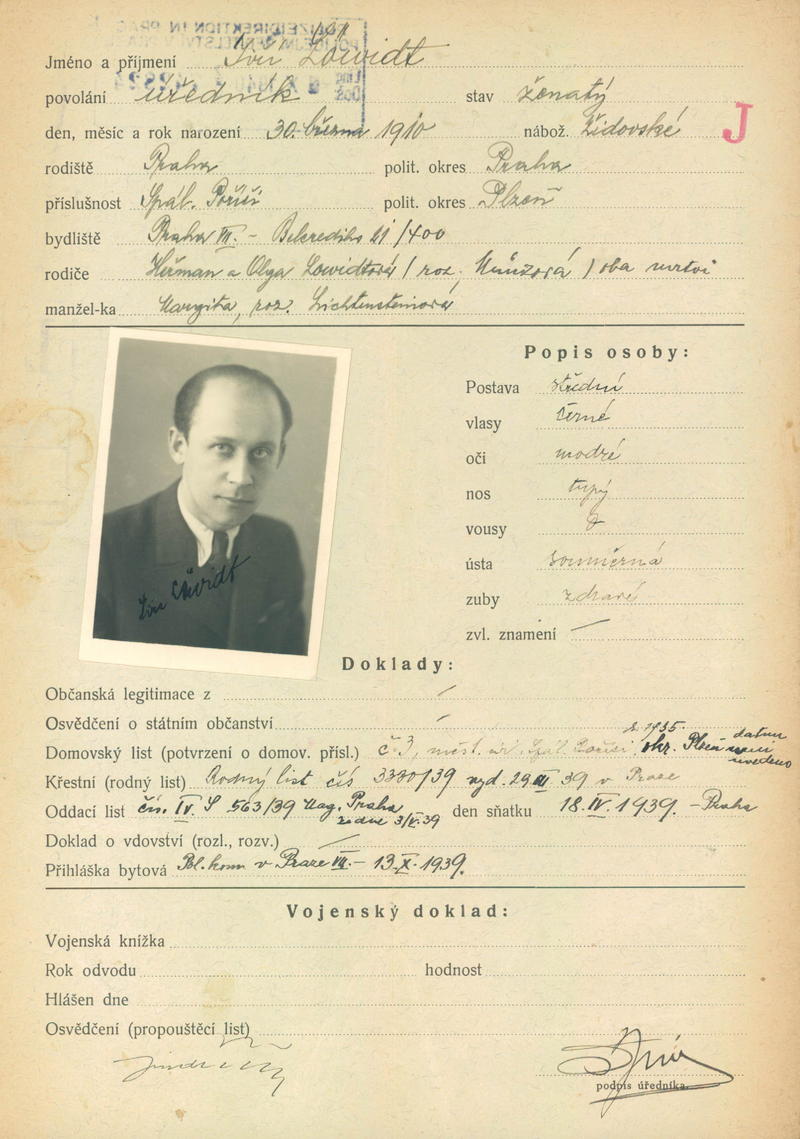 POLIZEIDIREKTION IN PRAG
Jméno a příjmení Jiří Löwidt
povolání úředník stav ženatý
den, měsíc a rok narození 30. března 1910 nábož. Židovské J
rodiště Praha polit. okres Praha
příslušnost Spál. Poříčí polit. okres Plzeň
bydliště Praha VII. - Belcrediho 11/400
rodiče Heřman a Olga Löwidtová / roz. Münzová / oba mrtvi
manžel-ka Margita, roz. Lichtensteinová
Popis osoby:
Postava střední
vlasy černé
oči modré
nos tupý
vousy 0
ústa souměrná
zuby zdravé
zvl. znamení —
Jiří Löwidt
Doklady:
Občanská legitimace z —
Osvědčení o státním občanství —
Domovský list (potvrzení o domov. přísl.) č. 3, měst. úř. Spál. Poříčí z 1935. okr. Plzeň datum není uvedeno
Křestní (rodný list) Rodný list čís 3380/39 vyd. 29 39 v Praze
Oddací list čís. IV. S 563/39 Mag. Praha ze dne 3/V. 39 den sňatku 18. IV. 1939. - Praha
Doklad o vdovství (rozl., rozv.) —
Přihláška bytová Pol. kom v Praze VII. - 13. X. 1939.
Vojenský doklad:
Vojenská knížka
Rok odvodu hodnost
Hlášen dne
Osvědčení (propouštěcí list)
podpis úředníka.